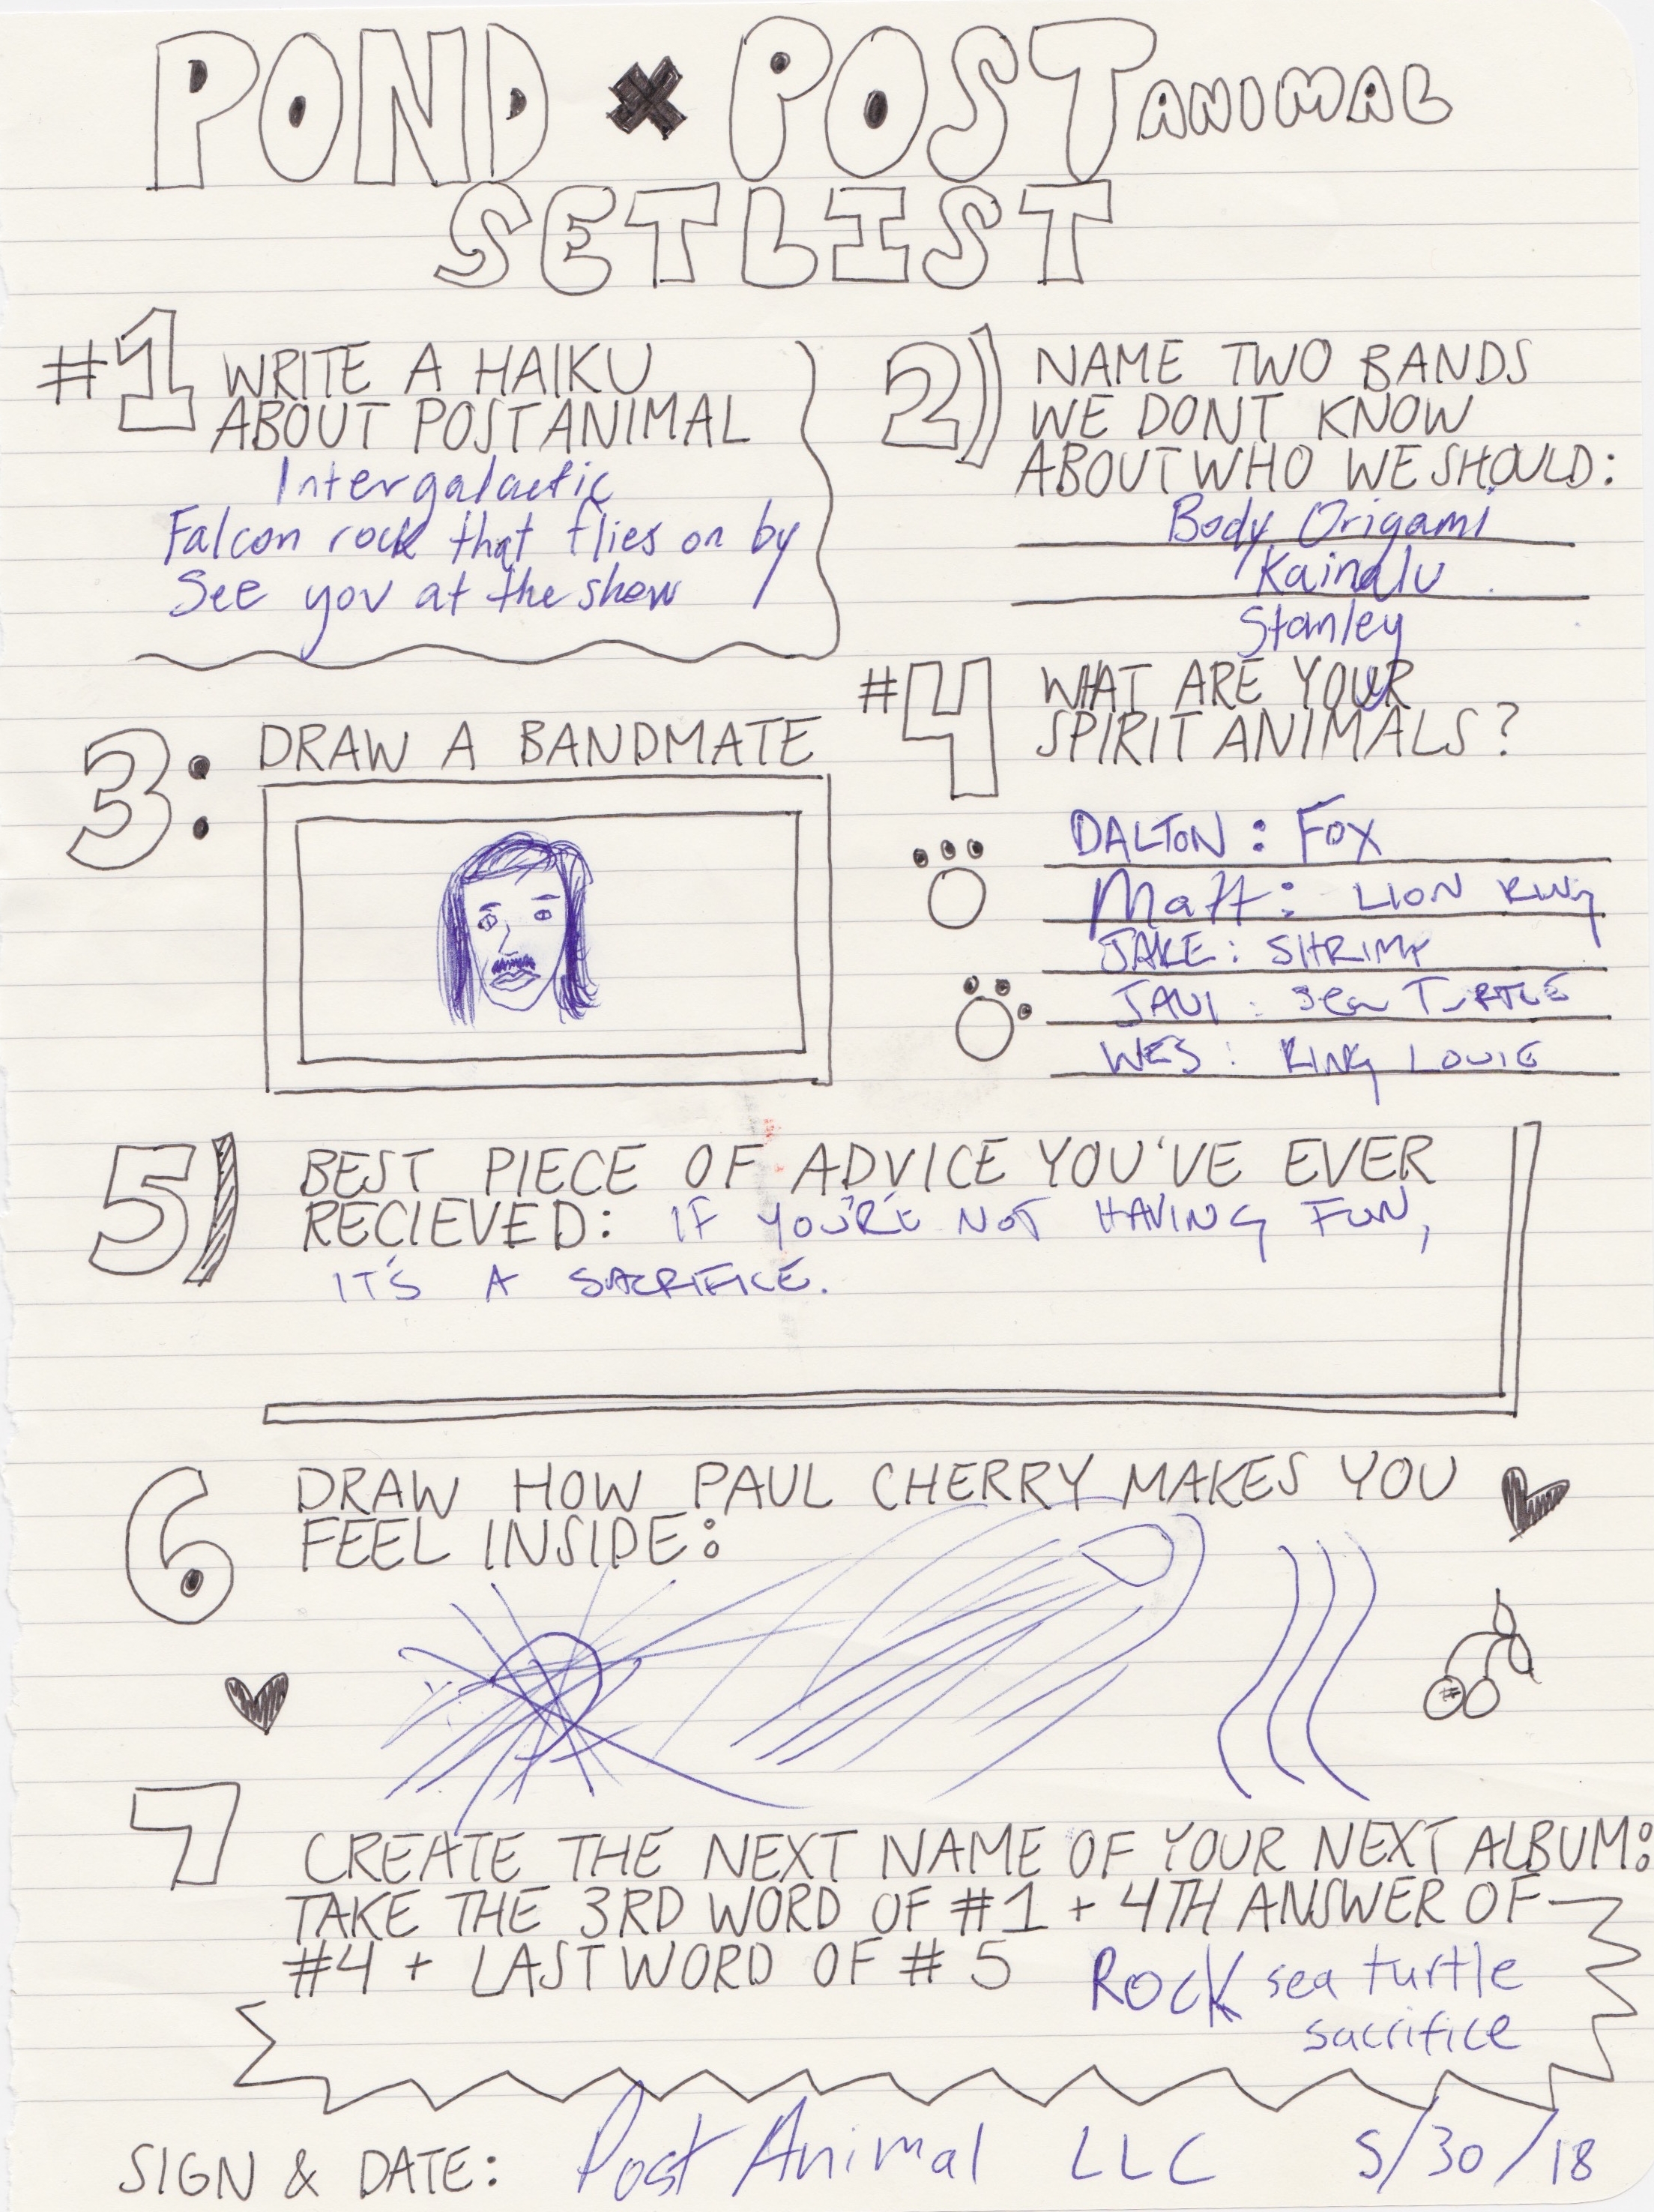 POND × POST ANIMAL
SETLIST
#1 WRITE A HAIKU
ABOUT POST ANIMAL
Intergalactic
Falcon rock that flies on by
See you at the show
2) NAME TWO BANDS
WE DONT KNOW
ABOUT WHO WE SHOULD:
Body Origami
Kainalu
Stanley
3: DRAW A BANDMATE
#4 WHAT ARE YOUR
SPIRIT ANIMALS?
DALTON: FOX
Matt: LION KING
JAKE: SHRIMP
JAVI: Sea TURTLE
WES: KING LOUIE
5) BEST PIECE OF ADVICE YOU'VE EVER
RECIEVED: IF YOU'RE NOT HAVING FUN,
IT'S A SACRIFICE.
6 DRAW HOW PAUL CHERRY MAKES YOU
FEEL INSIDE:
7 CREATE THE NEXT NAME OF YOUR NEXT ALBUM:
TAKE THE 3RD WORD OF #1 + 4TH ANSWER OF
#4 + LAST WORD OF #5 Rock sea turtle
sacrifice
SIGN & DATE: Post Animal LLC 5/30/18